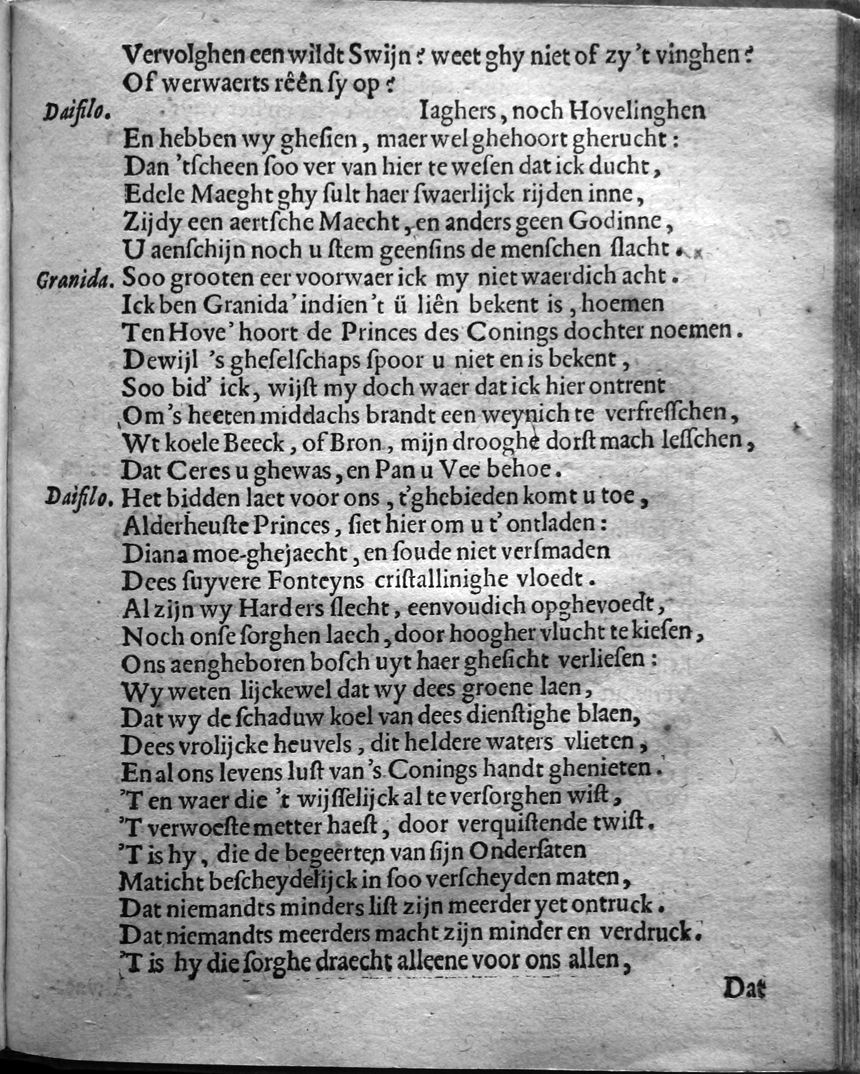 Vervolghen een wildt Swijn? weet ghy niet of zy 't vinghen?
Of werwaerts rêên ſy op?
Daifilo. Iaghers, noch Hovelinghen
En hebben wy gheſien, maer wel ghehoort gherucht:
Dan 'tſcheen ſoo ver van hier te weſen dat ick ducht,
Edele Maeght ghy ſult haer ſwaerlijck rijden inne,
Zijdy een aertſche Maecht, en anders geen Godinne,
U aenſchijn noch u ſtem geenſins de menſchen ſlacht.
Granida. Soo grooten eer voorwaer ick my niet waerdich acht.
Ick ben Granida' indien 't ü liên bekent is, hoemen
Ten Hove' hoort de Princes des Conings dochter noemen.
Dewijl 's gheſelſchaps ſpoor u niet en is bekent,
Soo bid' ick, wijſt my doch waer dat ick hier ontrent
Om 's heeten middachs brandt een weynich te verfreſſchen,
Wt koele Beeck, of Bron, mijn drooghe dorſt mach leſſchen,
Dat Ceres u ghewas, en Pan u Vee behoe.
Daifilo. Het bidden laet voor ons, t'ghebieden komt u toe,
Alderheuſte Princes, ſiet hier om u t' ontladen:
Diana moe-ghejaecht, en ſoude niet verſmaden
Dees ſuyvere Fonteyns criſtallinighe vloedt.
Al zijn wy Harders ſlecht, eenvoudich opghevoedt,
Noch onſe ſorghen laech, door hoogher vlucht te kieſen,
Ons aengheboren boſch uyt haer gheſicht verlieſen:
Wy weten lijckewel dat wy dees groene laen,
Dat wy de ſchaduw koel van dees dienſtighe blaen,
Dees vrolijcke heuvels, dit heldere waters vlieten,
En al ons levens luſt van 's Conings handt ghenieten.
'T en waer die 't wijſſelijck al te verſorghen wiſt,
'T verwoeſte metter haeſt, door verquiſtende twiſt.
'T is hy, die de begeerten van ſijn Onderſaten
Maticht beſcheydelijck in ſoo verſcheyden maten,
Dat niemandts minders liſt zijn meerder yet ontruck.
Dat niemandts meerders macht zijn minder en verdruck.
'T is hy die ſorghe draecht alleene voor ons allen,
Dat